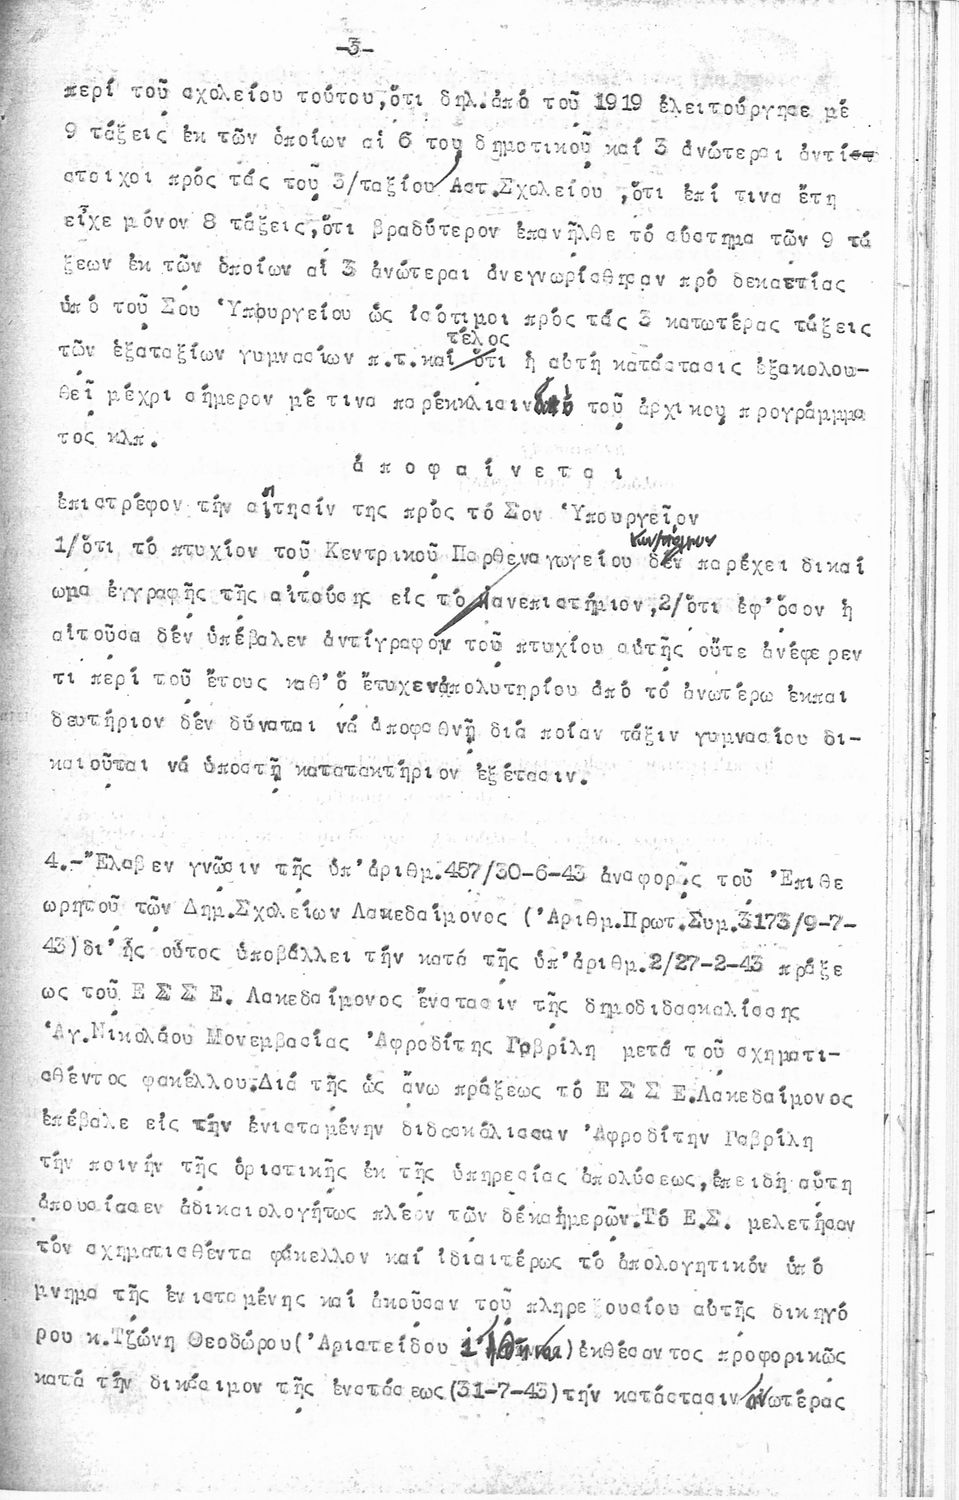 -3-
περί τοῦ σχολείου τούτου, ὅτι δηλ. ἀπό τοῦ 1919 ἐλειτούργησε μέ
9 τάξεις ἐκ τῶν ὁποίων αἱ 6 του δημοτικοῦ καί 3 ἀνώτεραι ἀντί
στοιχοι πρός τάς τοῦ 3/ταξίου Αστ.Σχολείου ,ὅτι ἐπί τινα ἔτη
εἶχε μόνον 8 τάξεις, ὅτι βραδύτερον ἐπανῆλθε τό σύστημα τῶν 9 τά
ξεων ἐκ τῶν ὁποίων αἱ 3 ἀνώτεραι ἀνεγνωρίσθησαν πρό δεκαετίας
ὑπό τοῦ Σου Ὑπουργείου ὡς ἰσότιμοι πρός τάς 3 κατωτέρας τάξεις
τῶν ἑξαταξίων γυμνασίων π.τ.καί τέλος ὅτι ἡ αὐτή κατάστασις ἐξακολου-
θεῖ μέχρι σήμερον μέ τινα παρέκκλισιν ἀπό τοῦ ἀρχικοῦ προγράμμμα
τος κλπ.
ἀ π ο φ α ί ν ε τ α ι
ἐπιστρέφον τήν αἴτησίν της πρός τό Σον Ὑπουργεῖον
1/ὅτι τό πτυχίον τοῦ Κεντρικοῦ Παρθεναγωγείου δέν παρέχει δικαί
ωμα ἐγγραφῆς τῆς αἰτούσης εἰς τό Πανεπιστήμιον,2/ὅτι ἐφ'ὅσον ἡ
αἰτοῦσα δέν ὑπέβαλεν ἀντίγραφον τοῦ πτυχίου αὐτῆς οὔτε ἀνέφερεν
τι περί τοῦ ἔτους καθ'ὅ ἔτυχεν ἀπολυτηρίου ἀπό τό ἀνωτέρω ἐκπαι
δευτήριον δέν δύναται νά ἀποφανθῇ διά ποίαν τάξιν γυμνασίου δι-
καιοῦται νά ὑποστῇ κατατακτήριον ἐξέτασιν.
4.-Ἔλαβεν γνῶσιν τῆς ὑπ'ἀριθμ.457/30-6-43 ἀναφορᾶς τοῦ Ἐπιθε
ωρητοῦ τῶν Δημ.Σχολείων Λακεδαίμονος (Ἀριθμ.Πρωτ.Συμ.3173/9-7-
43)δι' ἧς οὗτος ὑποβάλλει τήν κατά τῆς ὑπ'ἀριθμ.2/27-2-43 πράξε
ως τοῦ Ε Σ Σ Ε. Λακεδαίμονος ἔνστασιν τῆς δημοδιδασκαλίσσης
Ἁγ.Νικολάου Μονεμβασίας Ἀφροδίτης Γαβρίλη μετά τοῦ σχηματι-
σθέντος φακέλλου.Διά τῆς ὡς ἄνω πράξεως τό Ε Σ Σ Ε.Λακεδαίμονος
ἐπέβαλε εἰς τήν ἐνισταμένην διδασκάλισσαν Ἀφροδίτην Γαβρίλη
τήν ποινήν τῆς ὁριστικῆς ἐκ τῆς ὑπηρεσίας ἀπολύσεως,ἐπειδή αὕτη
ἀπουσίασεν ἀδικαιολογήτως πλέον τῶν δέκαἡμερῶν.Τό Ε.Σ. μελετῆσαν
τόν σχηματισθέντα φάκελλον καί ἰδιαιτέρως τό ἀπολογητικόν ὑπό
μνημα τῆς ἐνισταμένης καί ἀκοῦσαν τοῦ πληρεξουσίου αὐτῆς δικηγό
ρου κ.Τζώνη Θεοδώρου(Ἀριστείδου )ἐκθέσαντος προφορικῶς
κατά τήν δικάσιμον τῆς ἐνστάσεως(31-7-43)τήν κατάστασιν ἀνωτέρας